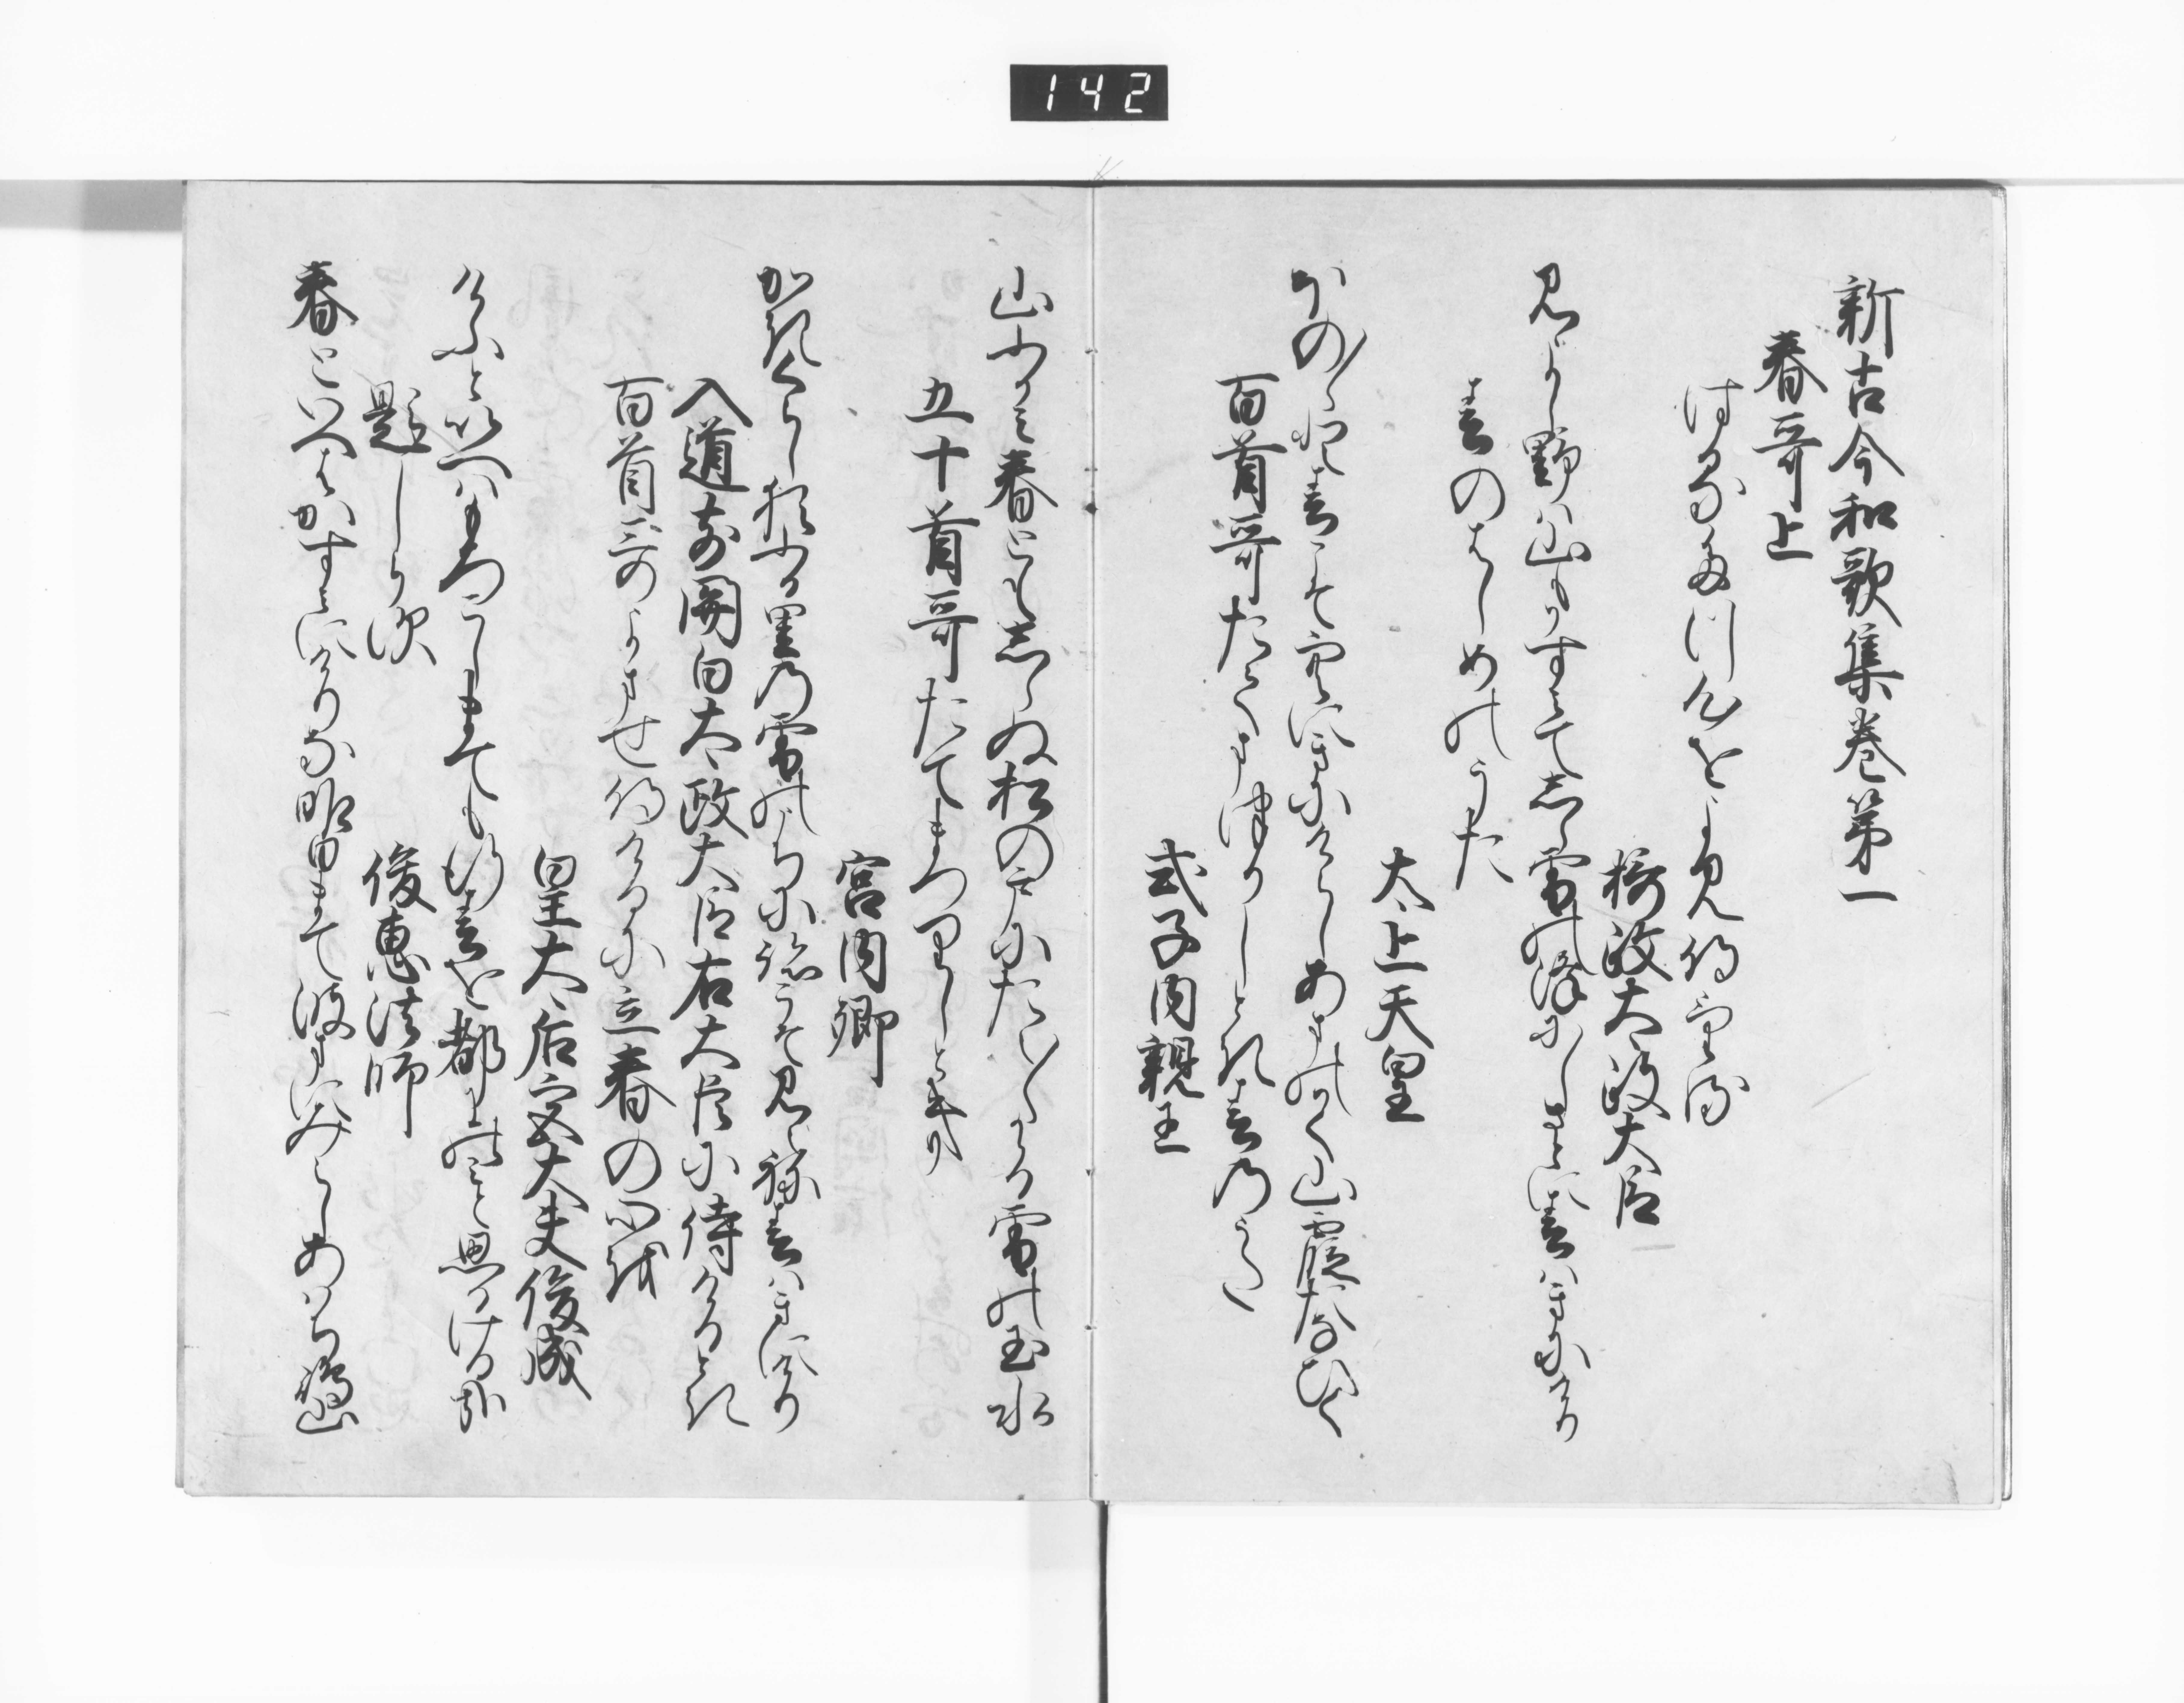 142
新古今和歌集巻第一
春哥上
はるたつ心をよみ侍ける
摂政太政大臣
見よし野は山もかすみてしら雪のふりにし里に春はきにけり
春のはしめのうた
太上天皇
ほの〳〵と春こそ空にきにけらしあまのかく山霞たなひく
百首哥たてまつりしとき春のうた
式子内親王
山ふかみ春ともしらぬ松の戸にたえ〳〵かゝる雪の玉水
五十首哥たてまつりしとき
宮内卿
かきくらし猶ふる里の雪のうちに跡こそ見えね春はきにけり
入道前関白太政大臣右大臣に侍けるとき
百首哥よませ侍けるに立春の心を
皇太后宮大夫俊成
けふといへはもろこしまても行春を都にのみと思ひけるかな
題しらす
俊恵法師
春といへはかすみにけりな昨日まて波まに見えしあはち嶋山